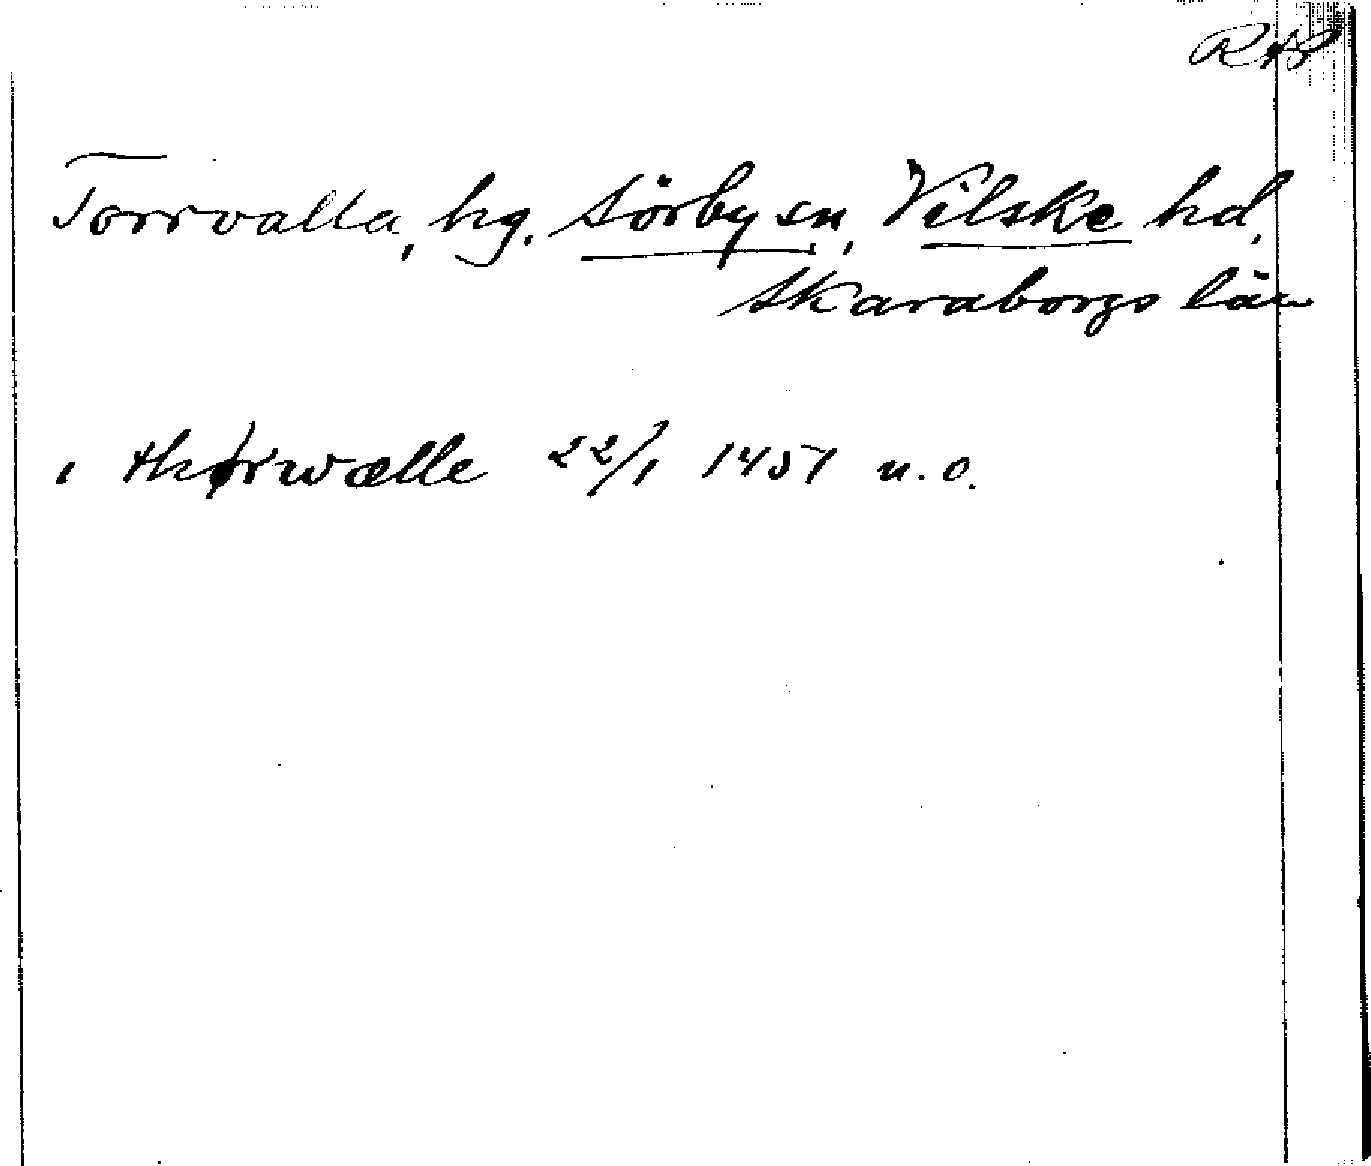 RAP
Torrvalla, hg. Sörby sn, Vilske hd,
Skaraborgs län
i thørwælle 22/1 1451 u.o.